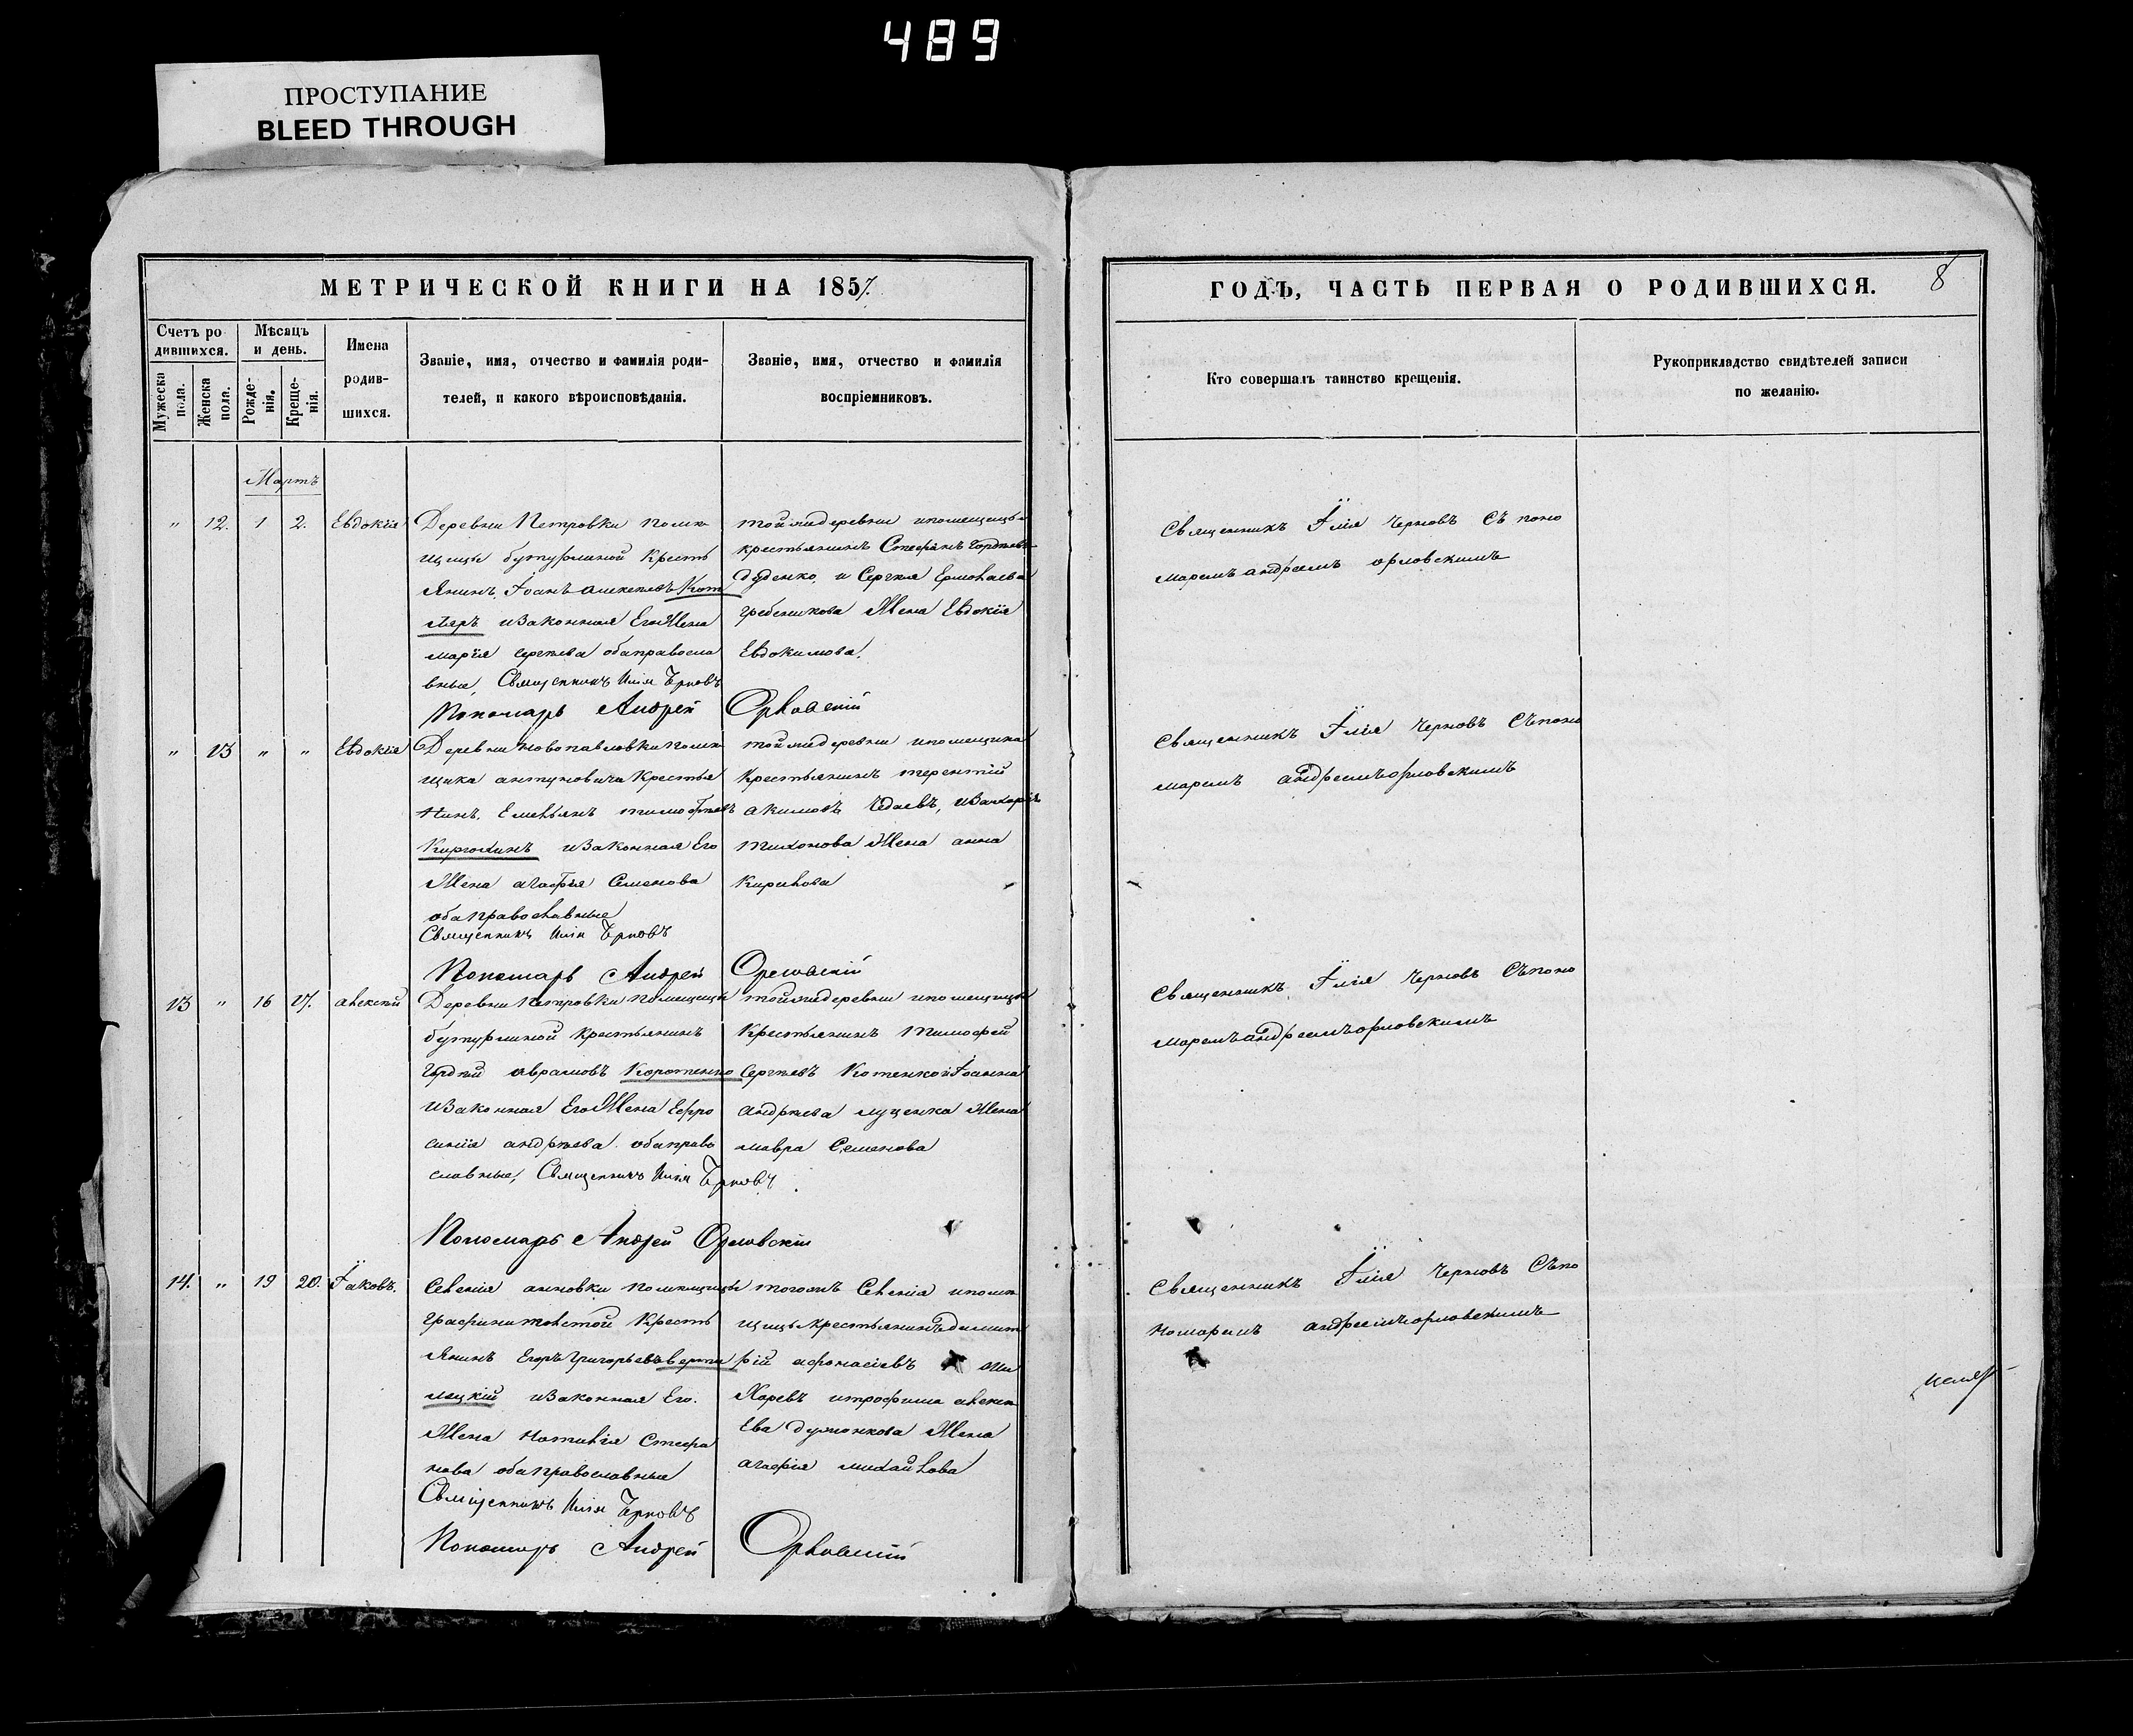 489
ПРОСТУПАНИЕ
BLEED THROUGH
МЕТРИЧЕСКОЙ КНИГИ НА 1857.
ГОДЪ, ЧАСТЬ ПЕРВАЯ О РОДИВШИХСЯ.
8
Счетъ ро
дившихся.
Мужеска
пола.
Женска
пола.
Мѣсяцъ
и день.
Рожде-
нія.
Креще-
нія.
Имена
родив-
шихся.
Званіе, имя, отчество и фамилія роди-
телей, и какого вѣроисповѣданія.
Званіе, имя, отчество и фамилія
воспріемниковъ.
Кто совершалъ таинство крещенія.
Рукоприкладство свидѣтелей записи
по желанію.
Мартъ
" 12. 1 2. Евдокія
Деревни Петровки помѣ
щицы бутурлиной Кресть
янинъ Іоанъ алексѣевъ Кот
ляръ изаконная Его Жена
марія сергѣева обаправосла
вные, Священникъ Илія Чрновъ
Пономарь Андрей Орловскій
тойжедеревни ипомещицы
крестьянинъ Стефанъ Гордѣевъ
Дуденко, и Сергѣя Ермолаева
гребеникова Жена Евдокія
Евдокимова.
Священникъ Іліа Черновъ Съ поно
маремъ андреемъ орловскимъ
" 13 " " Евдокія
Деревни новопавловки помѣ
щика антуновича Крестья
нинъ Емельянъ тимофѣевъ
изаконная Его
Жена агафія Семенова
обаправославные
Священникъ Илія Чрновъ
Пономарь Андрей Орловскій
тойжедеревни ипомещика
Крестьянинъ терентій
акимовъ
тихонова Жена анна
Кирилова
Священникъ Іліа Черновъ Съпоно
маремъ андреемъорловскимъ
13 " 16 17. алексѣй
Деревни Петровки помещицы
бутурлиной крестьянинъ
Гордѣй аврамовъ Коротенко
изаконная Его Жена Ефро
синія андрѣева обаправо
славные, Священникъ Илія Чрновъ
Пономарь Андрей Орловскій
тойжедеревни ипомещицы
Крестьянинъ тимофей
Сергѣевъ Котенко иІоанна
андрѣева луценка Жена
мавра Семенова
Священникъ Іліа Черновъ Съпоно
маремъандреемъорловскимъ
14. " 19 20. Іаковъ.
Селенія анновки помѣщицы
Графини толстой Кресть
янинъ Егоръ григорьевъ
изаконная Его.
Жена наталія Стефа
нова обаправославные
Священникъ Илія Чрновъ
Пономарь Андрей Орловскій
тогожъ Селенія ипомѣ
щицы крестьянинъ димит
рій афонасіевъ
итрофима алексѣ
Ева Жена
агафія михайлова
Священникъ Іліа Черновъ Съпо
номаремъ андреемъорловскимъ